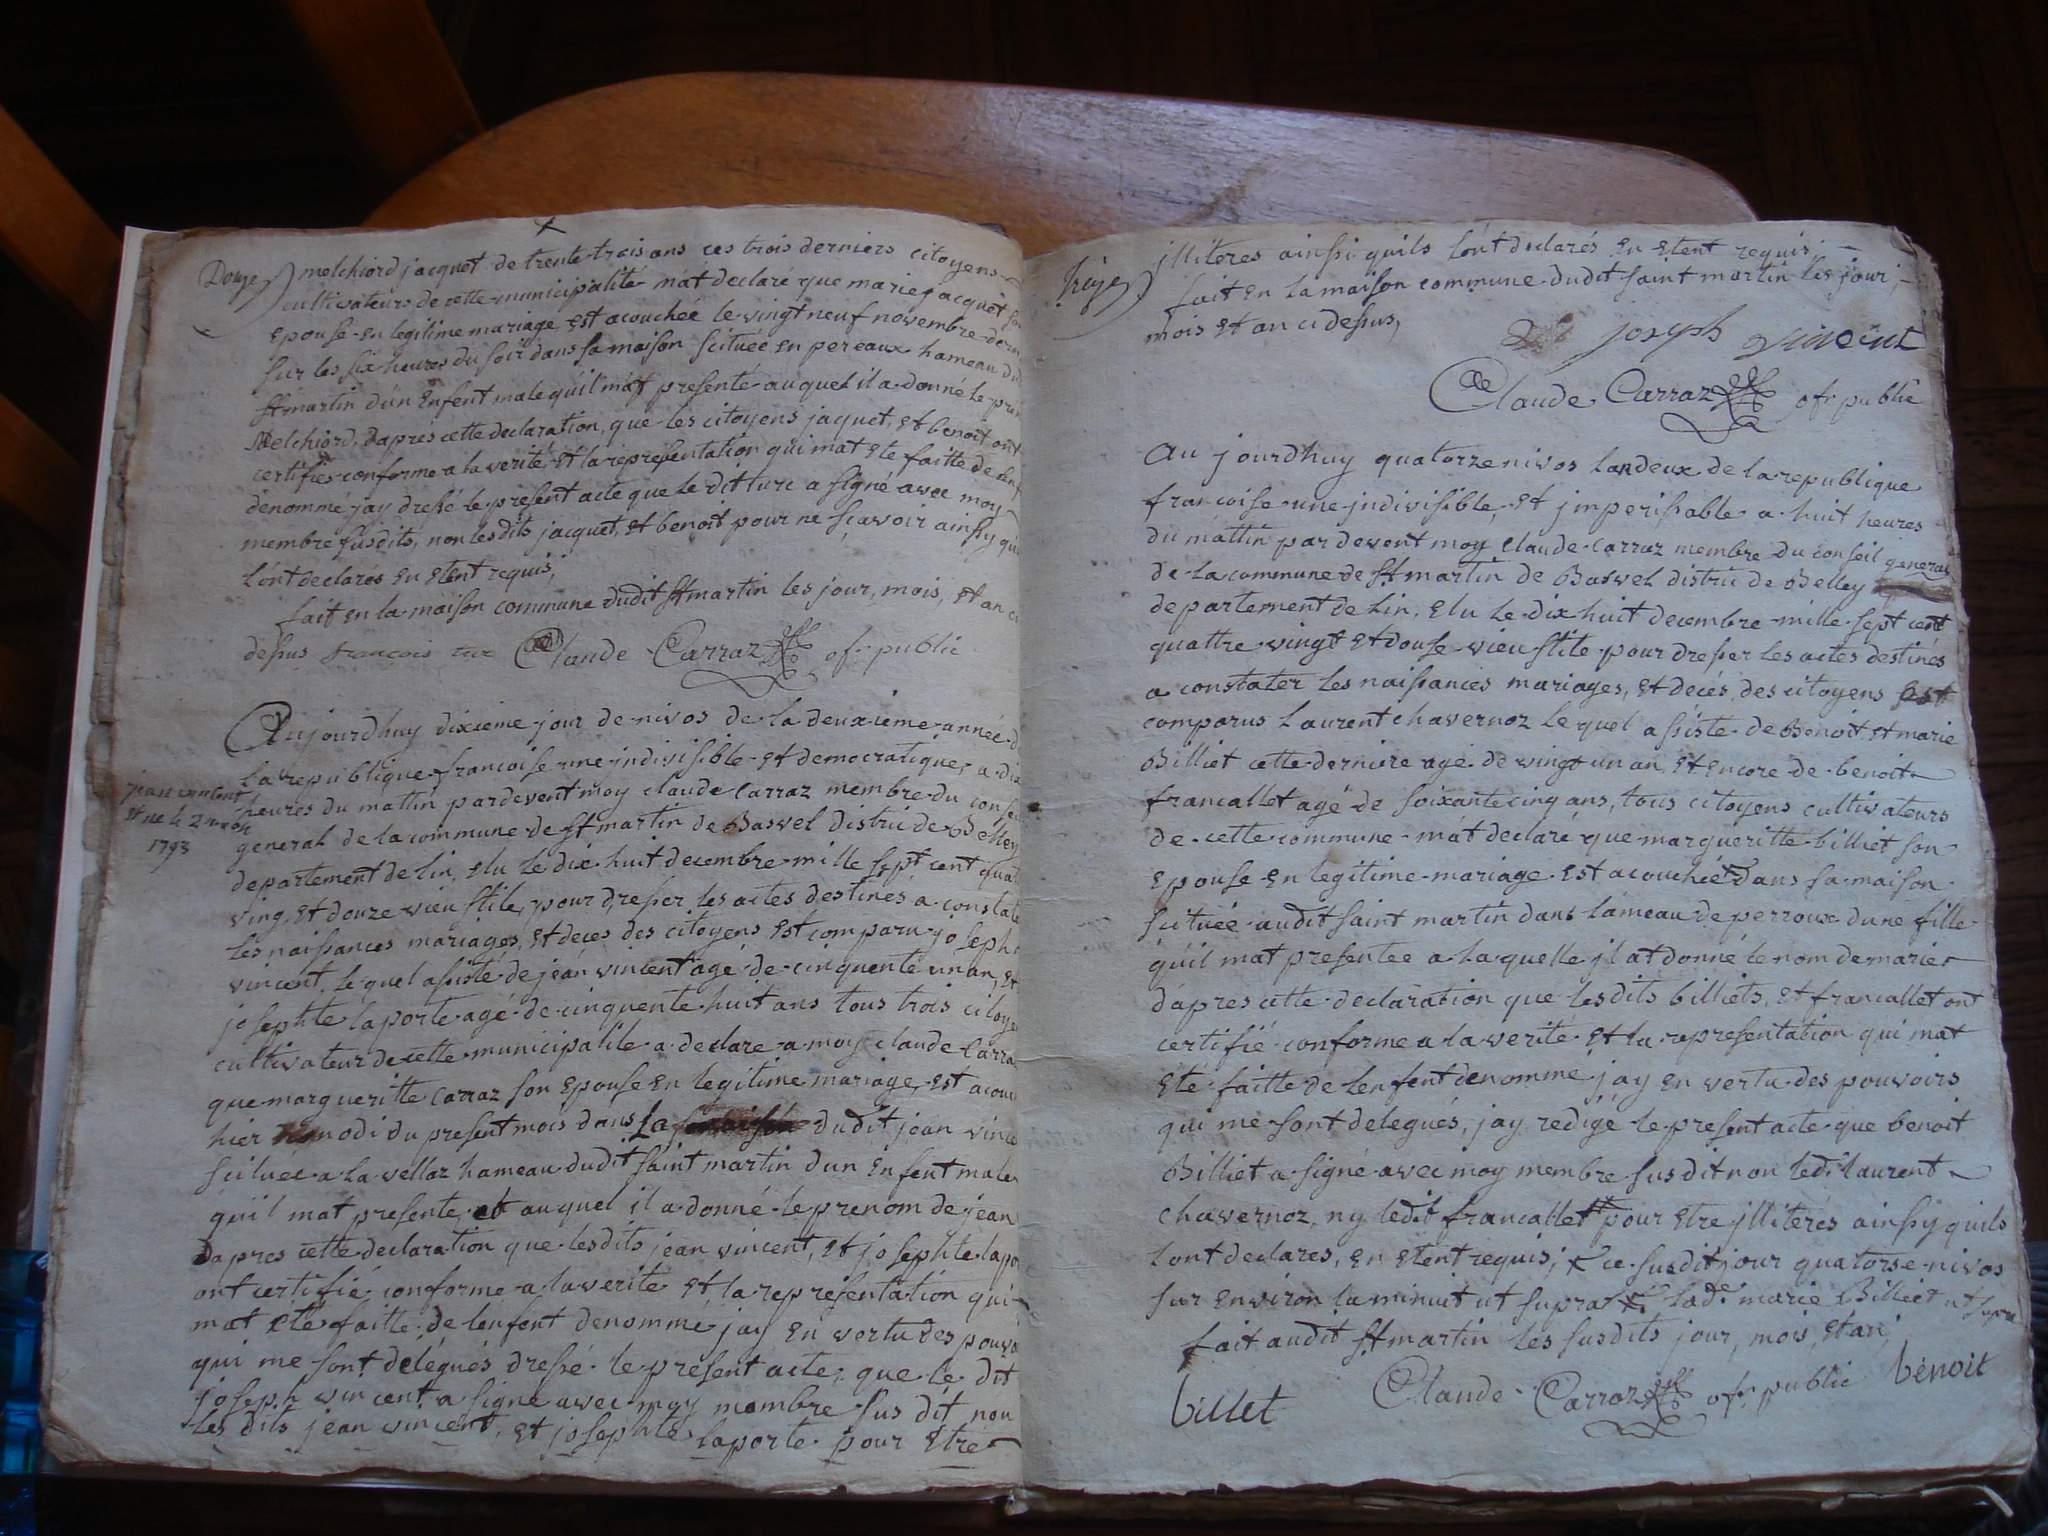 Douze
melchiord jacquet de trente trois ans ces trois derniers citoyens
cultivateurs de cette municipalité m'at declaré que marie jacquet
epouse en legitime mariage est acouchée le vingt neuf novembre
sur les six heures du soir dans sa maison scituée en pereaux hameau
st martin d'un enfent male quil m'at presenté auquel il a donné le
Melchiord, daprés cette declaration, que les citoyens jaquet, et benoit ont
certifier conforme a la verité et la representation qui mat ete faitte de
denommé jay dressé le present acte que le dit turc a signé avec moy
membre susdits, non lesdits jacquet, et benoit pour ne sçavoir ainsy
lónt declarés en etent requis,
fait en la maison commune dudit st martin les jour, mois, et an
dessus francois turc Claude Carraz of. public
Aujourdhuy dixieme jour de nivos de la deuxieme année
la republique francoise une indivisible et democratique, a
jean vincent
heures du mattin pardevent moy claude carraz membre du
est né le 2
general de la commune de st martin de Bavel distric de Belley
1793
departement de lin, elu le dix huit decembre mille sept cent
ving, et douze vieu stile, pour dresser les actes destinés a
les naissances mariages, et deces des citoyens est comparu joseph
vincent, le quel assisté de jean vincent agé de cinquente un an, et
josephte laporte agé de cinquente huit ans tous trois
cultivateur de cette municipalité a declare a moy claude
que margueritte carraz son epouse en legitime mariage, est
hier du present mois dans La dudit jean
scituee a la vellaz hameau dudit saint martin dun enfent male
quil mat presente, et auquel il a donné le prenom de jean
Dapres cette declaration que lesdits jean vincent, et josephte
ont certifié conforme a la verité et la representation qui
mat eté faitte de lenfent denommé jay en vertu des
qui me sont delégués dressé le present acte, que le dit
joseph vincent a signé avec moy membre sus dit non
les dits jean vincent, et josephte laporte pour etre
illiteres ainssi quils lónt declarés en etent requis,
fait en la maison commune dudit saint martin les jour,
mois et an ci dessus,
joseph vincent
Claude Carraz of. public
Au jourdhuy quatorze nivos lan deux de la republique
francoise une indivisible, et imperissable a huit heures
du mattin pardevent moy claude carraz membre du conseil general
de la commune de st martin de Bavel distric de Belley
departement de lin, elu le dix huit decembre mille sept cent
quattre vingt et douse vieu stile pour dresser les actes destinés
a constater les naissances mariages, et decés, des citoyens est
comparus laurent chavernoz le quel assiste de Benoit et marie
Billiet cette derniere agé de vingt un an, et encore de benoit
francallet agé de soixante cinq ans, tous citoyens cultivateurs
de cette commune m'at declaré que margueritte billiet son
epouse en legitime mariage est acouchée dans sa maison
scituée audit saint martin dans lameau de perroux dune fille
quil mat presentee a laquelle il at donné le nom de marie
dapres cette declaration que lesdits billiets, et francallet ont
certifié conforme a la verité et la representation qui mat
ete faitte de lenfent denommé jay en vertu des pouvoirs
qui me sont delegués, jay redigé le present acte que benoit
Billiet a signé avec moy membre sus dit non ledt laurent
chavernoz, ny ledit francallet pour etre illiterés ainssy quils
lont declares, en etent requis; ce susdit jour quatorse nivos
sur environ la minuit ut supra lade marie Billiet ut supra
fait audit st martin les susdits jour, mois, et an;
billet Claude Carraz of. public benoit